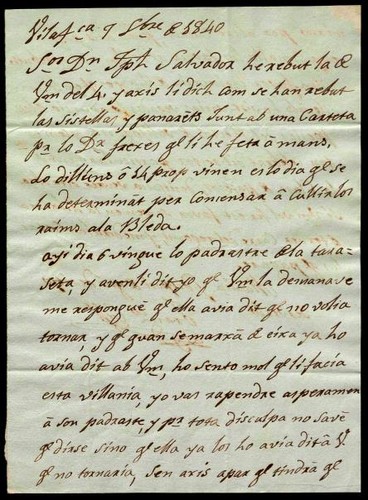 Vilafca y 9bre de 1840
Sor Dn Jph Salvador he rebut la de
Vm del 4. y axis li dich com se han rebut
las sistellas y panarets Junt ab una Carteta
pr lo Dr facres ql li he feta â mans,
Lo dilluns ô 14 prop vinen es lo dia ql se
ha determinat per Comensar â Cullir los
raims a la Bleda.
ayi dia 6 vingue lo padrastre de la tara=
seta, y aventli dit yo ql Vm la demanava
me respongué ql ella avia dit ql no volia
tornar y ql quan se marrá de eixa ya ho
avia dit ab Vm, ho sento mol ql li facia
esta villania, yo vas rapendre asperamen
â son padrastre, y pr tota disculpa no save
ql dirse sino ql ella ya los ho avia dit â V
ql no tornaria, sen axis apar ql tindrá ql